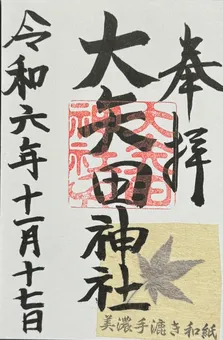 奉拝
大矢田神社
令和六年十一月十七日
大矢田
神社
美濃手漉き和紙